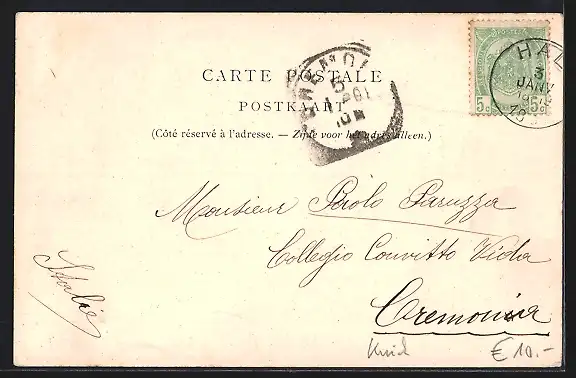 CARTE POSTALE
POSTKAART
(Côté réservé à l'adresse. — Zijde voor het adres alleen.)
HAL
3
JANV
5c 5c
CREMONA
5
1 01
10 M
Monsieur Paolo Paruzza
Collegio Convitto Vida
Cremona
Italie
€ 10.-